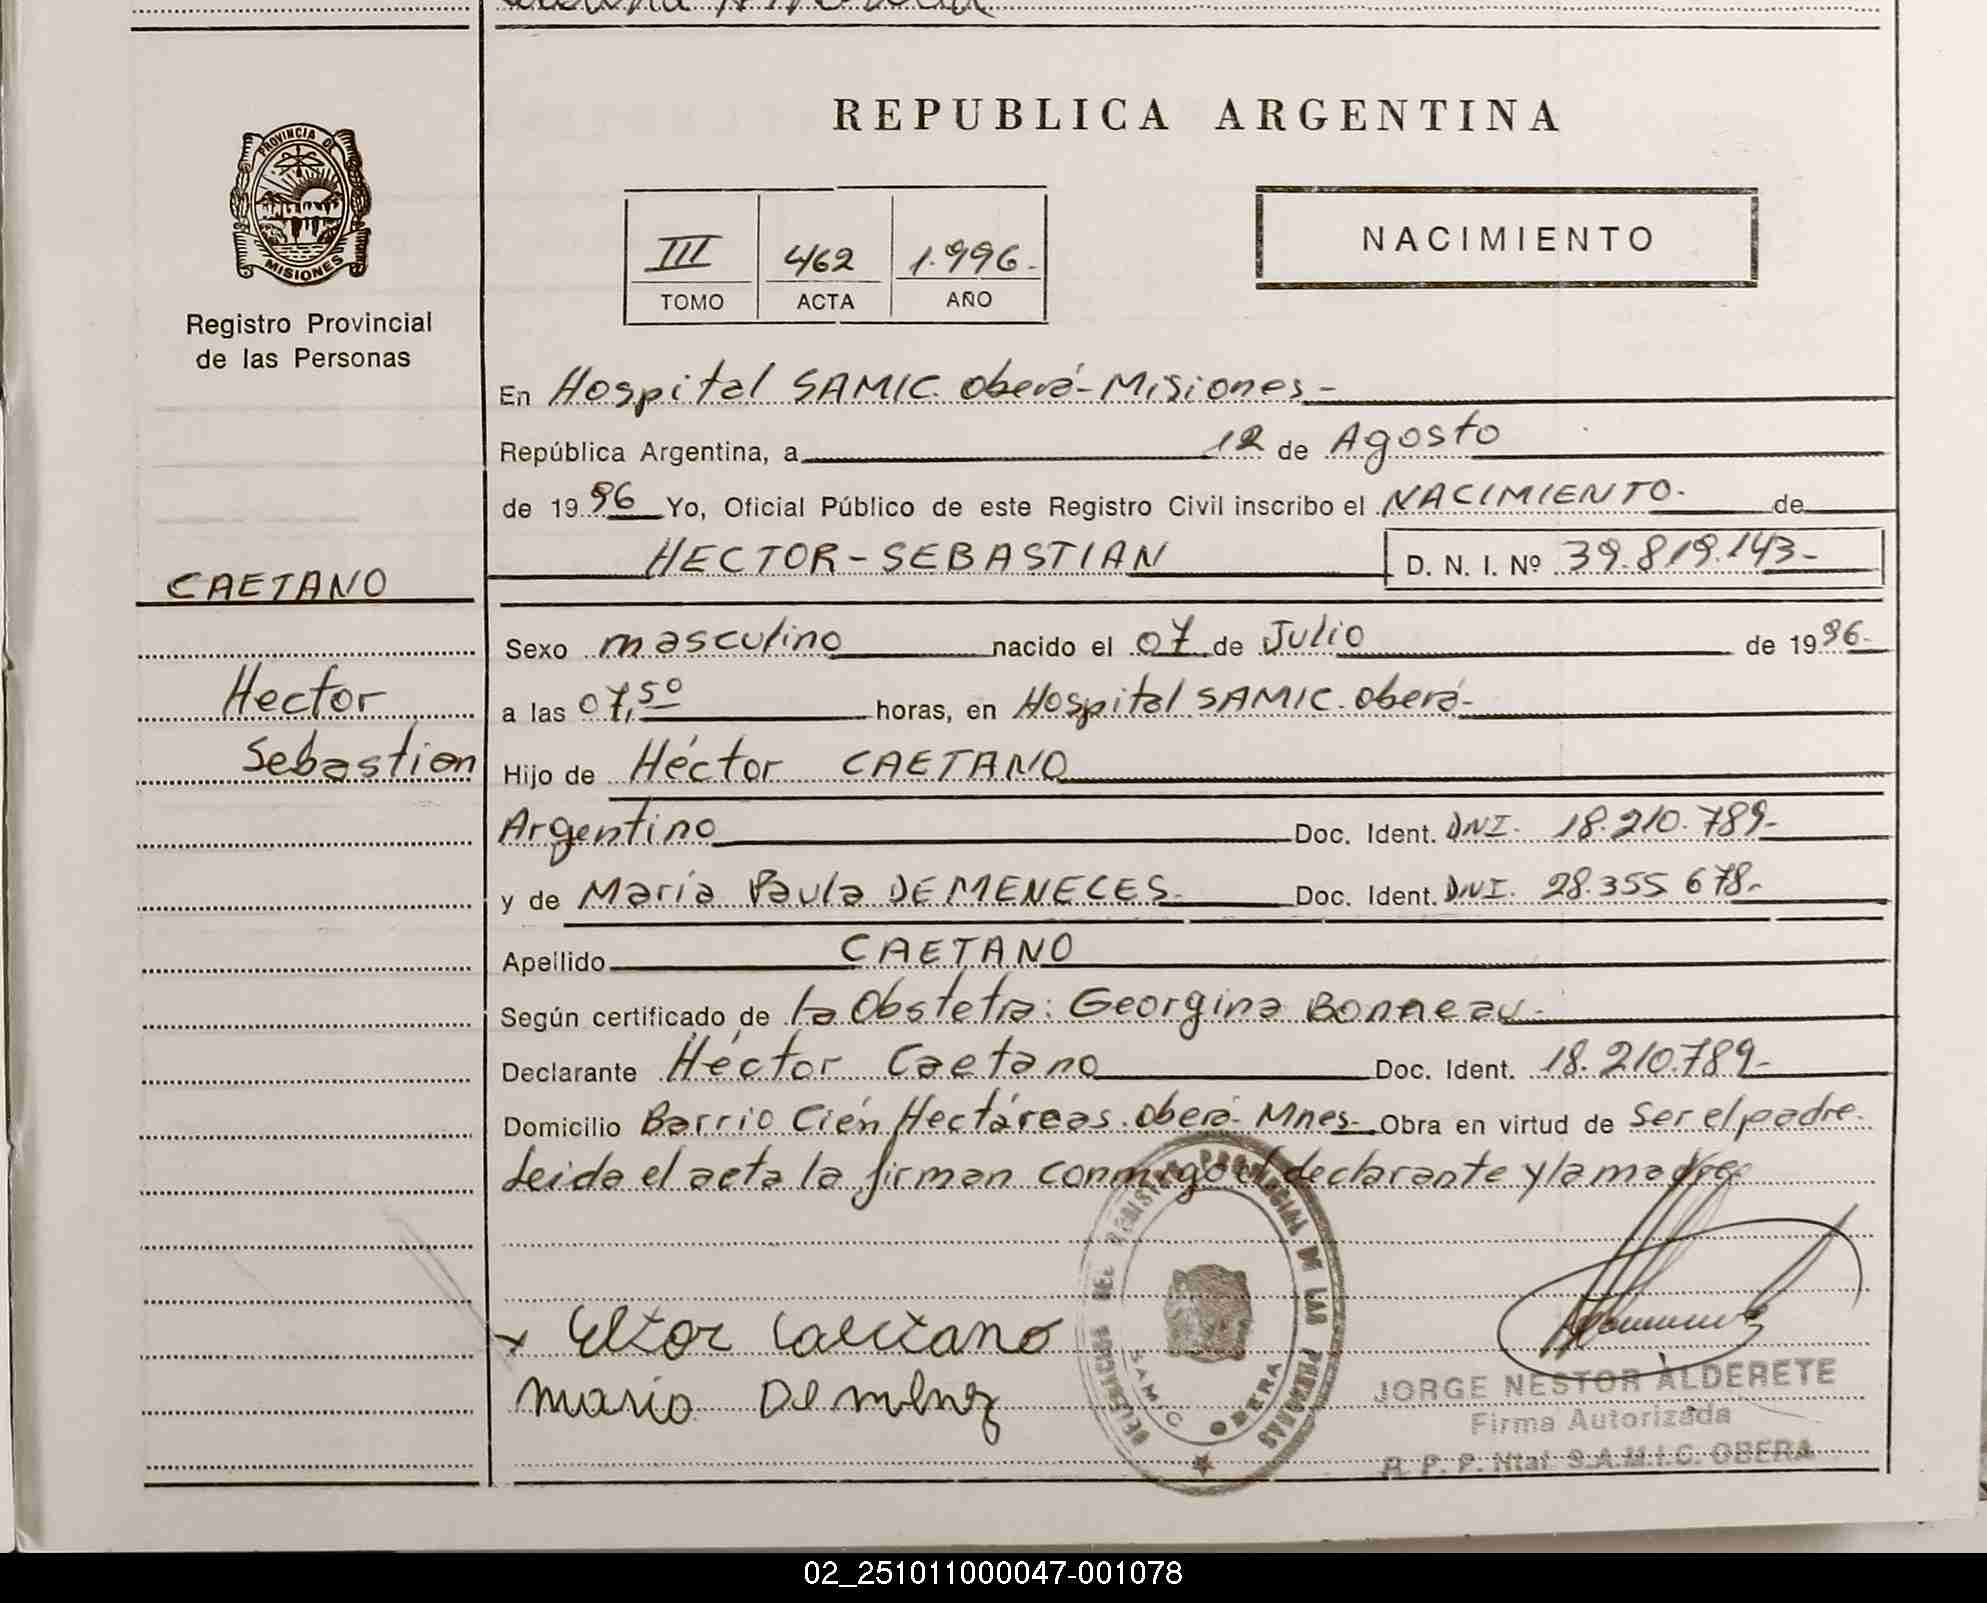 PROVINCIA DE
MISIONES
Registro Provincial
de las Personas
CAETANO
Hector
Sebastian
REPUBLICA ARGENTINA
III 462 1.996.-
TOMO ACTA AÑO
NACIMIENTO
En Hospital SAMIC. Oberá - Misiones -
República Argentina, a 12 de Agosto
de 1996 Yo, Oficial Público de este Registro Civil inscribo el NACIMIENTO.- de
HECTOR - SEBASTIAN D. N. I. Nº 39.819.143-
Sexo masculino nacido el 07 de Julio de 1996.-
a las 07,50 horas, en Hospital SAMIC. Oberá-
Hijo de Héctor CAETANO
Argentino Doc. Ident. DNI. 18.210.789-
y de María Paula DE MENECES- Doc. Ident. DNI. 28.355 678.-
Apellido CAETANO
Según certificado de la Obstetra: Georgina Bonneau.-
Declarante Héctor Caetano Doc. Ident. 18.210.789-
Domicilio Barrio Cién Hectáreas. Oberá- Mnes- Obra en virtud de Ser el padre.
Leida el acta la firman conmigo el declarante y la madre
DELEGACION DEL REGISTRO PROVINCIAL DE LAS PERSONAS
SAMIC OBERA
JORGE NESTOR ALDERETE
Firma Autorizada
R. P. P. Ntal S.A.M.I.C. OBERA
02_251011000047-001078